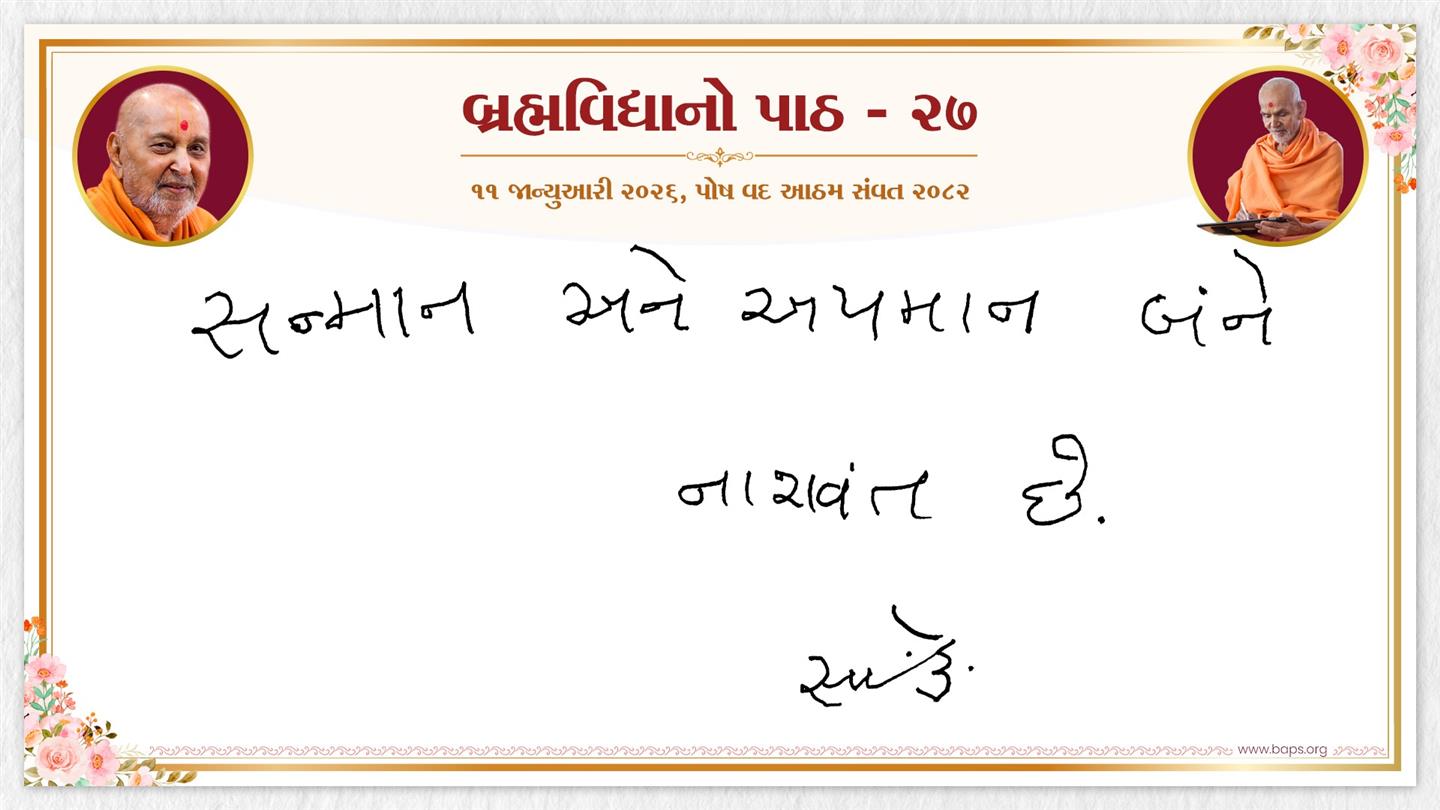 બ્રહ્મવિદ્યાનો પાઠ - ૨૭
૧૧ જાન્યુઆરી ૨૦૨૬, પોષ વદ આઠમ સંવત ૨૦૮૨
સન્માન અને અપમાન બંને
નાશવંત છે.
www.baps.org